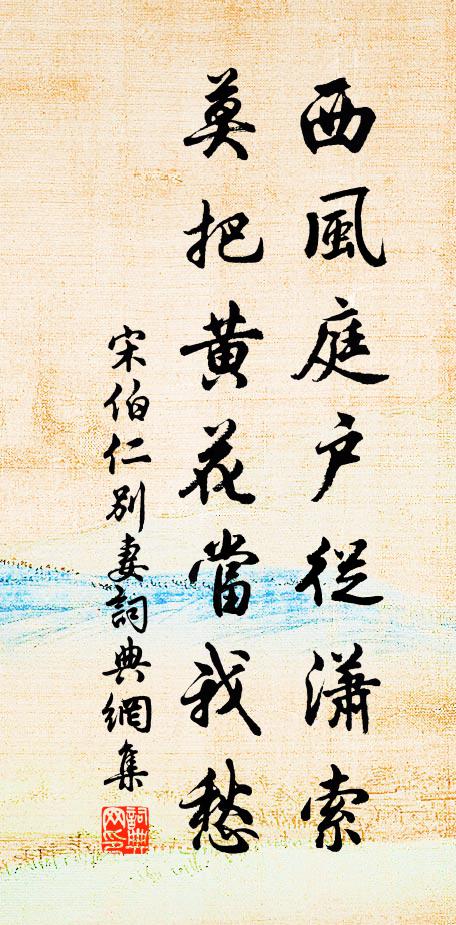 西風庭戶從瀟索
莫把黃花當我愁
宋伯仁別妻詞典網集
詞典網印